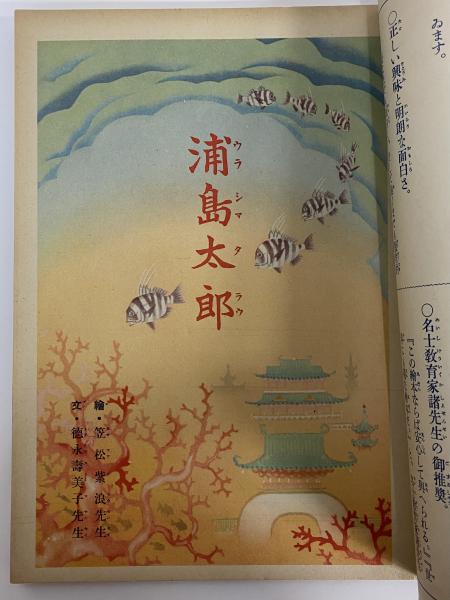 ゐます。
○正しい興味と明朗な面白さ。
○名士教育家諸先生の御推奬。
『この繪本ならば安心して與へられる』『
浦島太郎
ウラシマタラウ
繪・笠松紫浪先生
文・德永壽美子先生